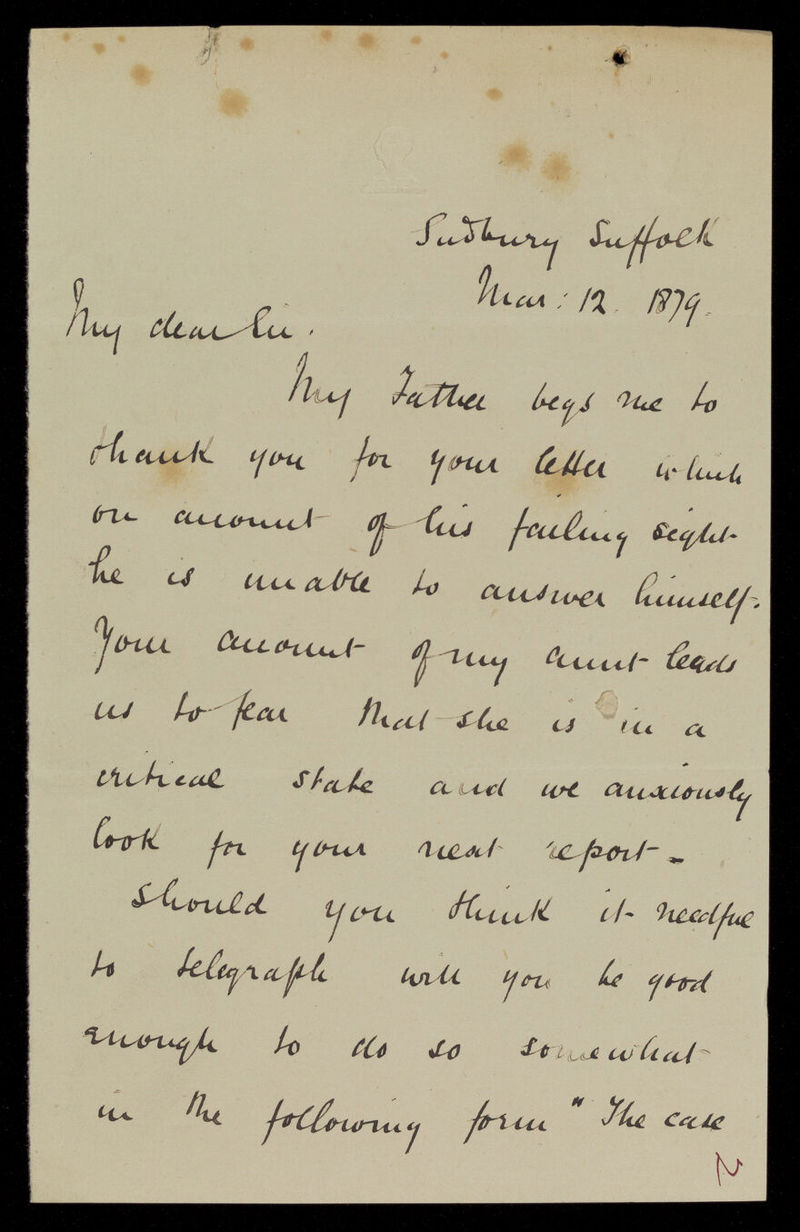 Sudbury Suffolk
Mar: 12. 1879.
My dear Sir.
My Father begs me to
thank you for your letter which
on account of his failing sight
he is unable to answer himself.
Your account of my aunt leads
us to fear that she is in a
critical state and we anxiously
look for your next report -
Should you think it needful
to telegraph will you be good
enough to do so somewhat
in the following form "The case